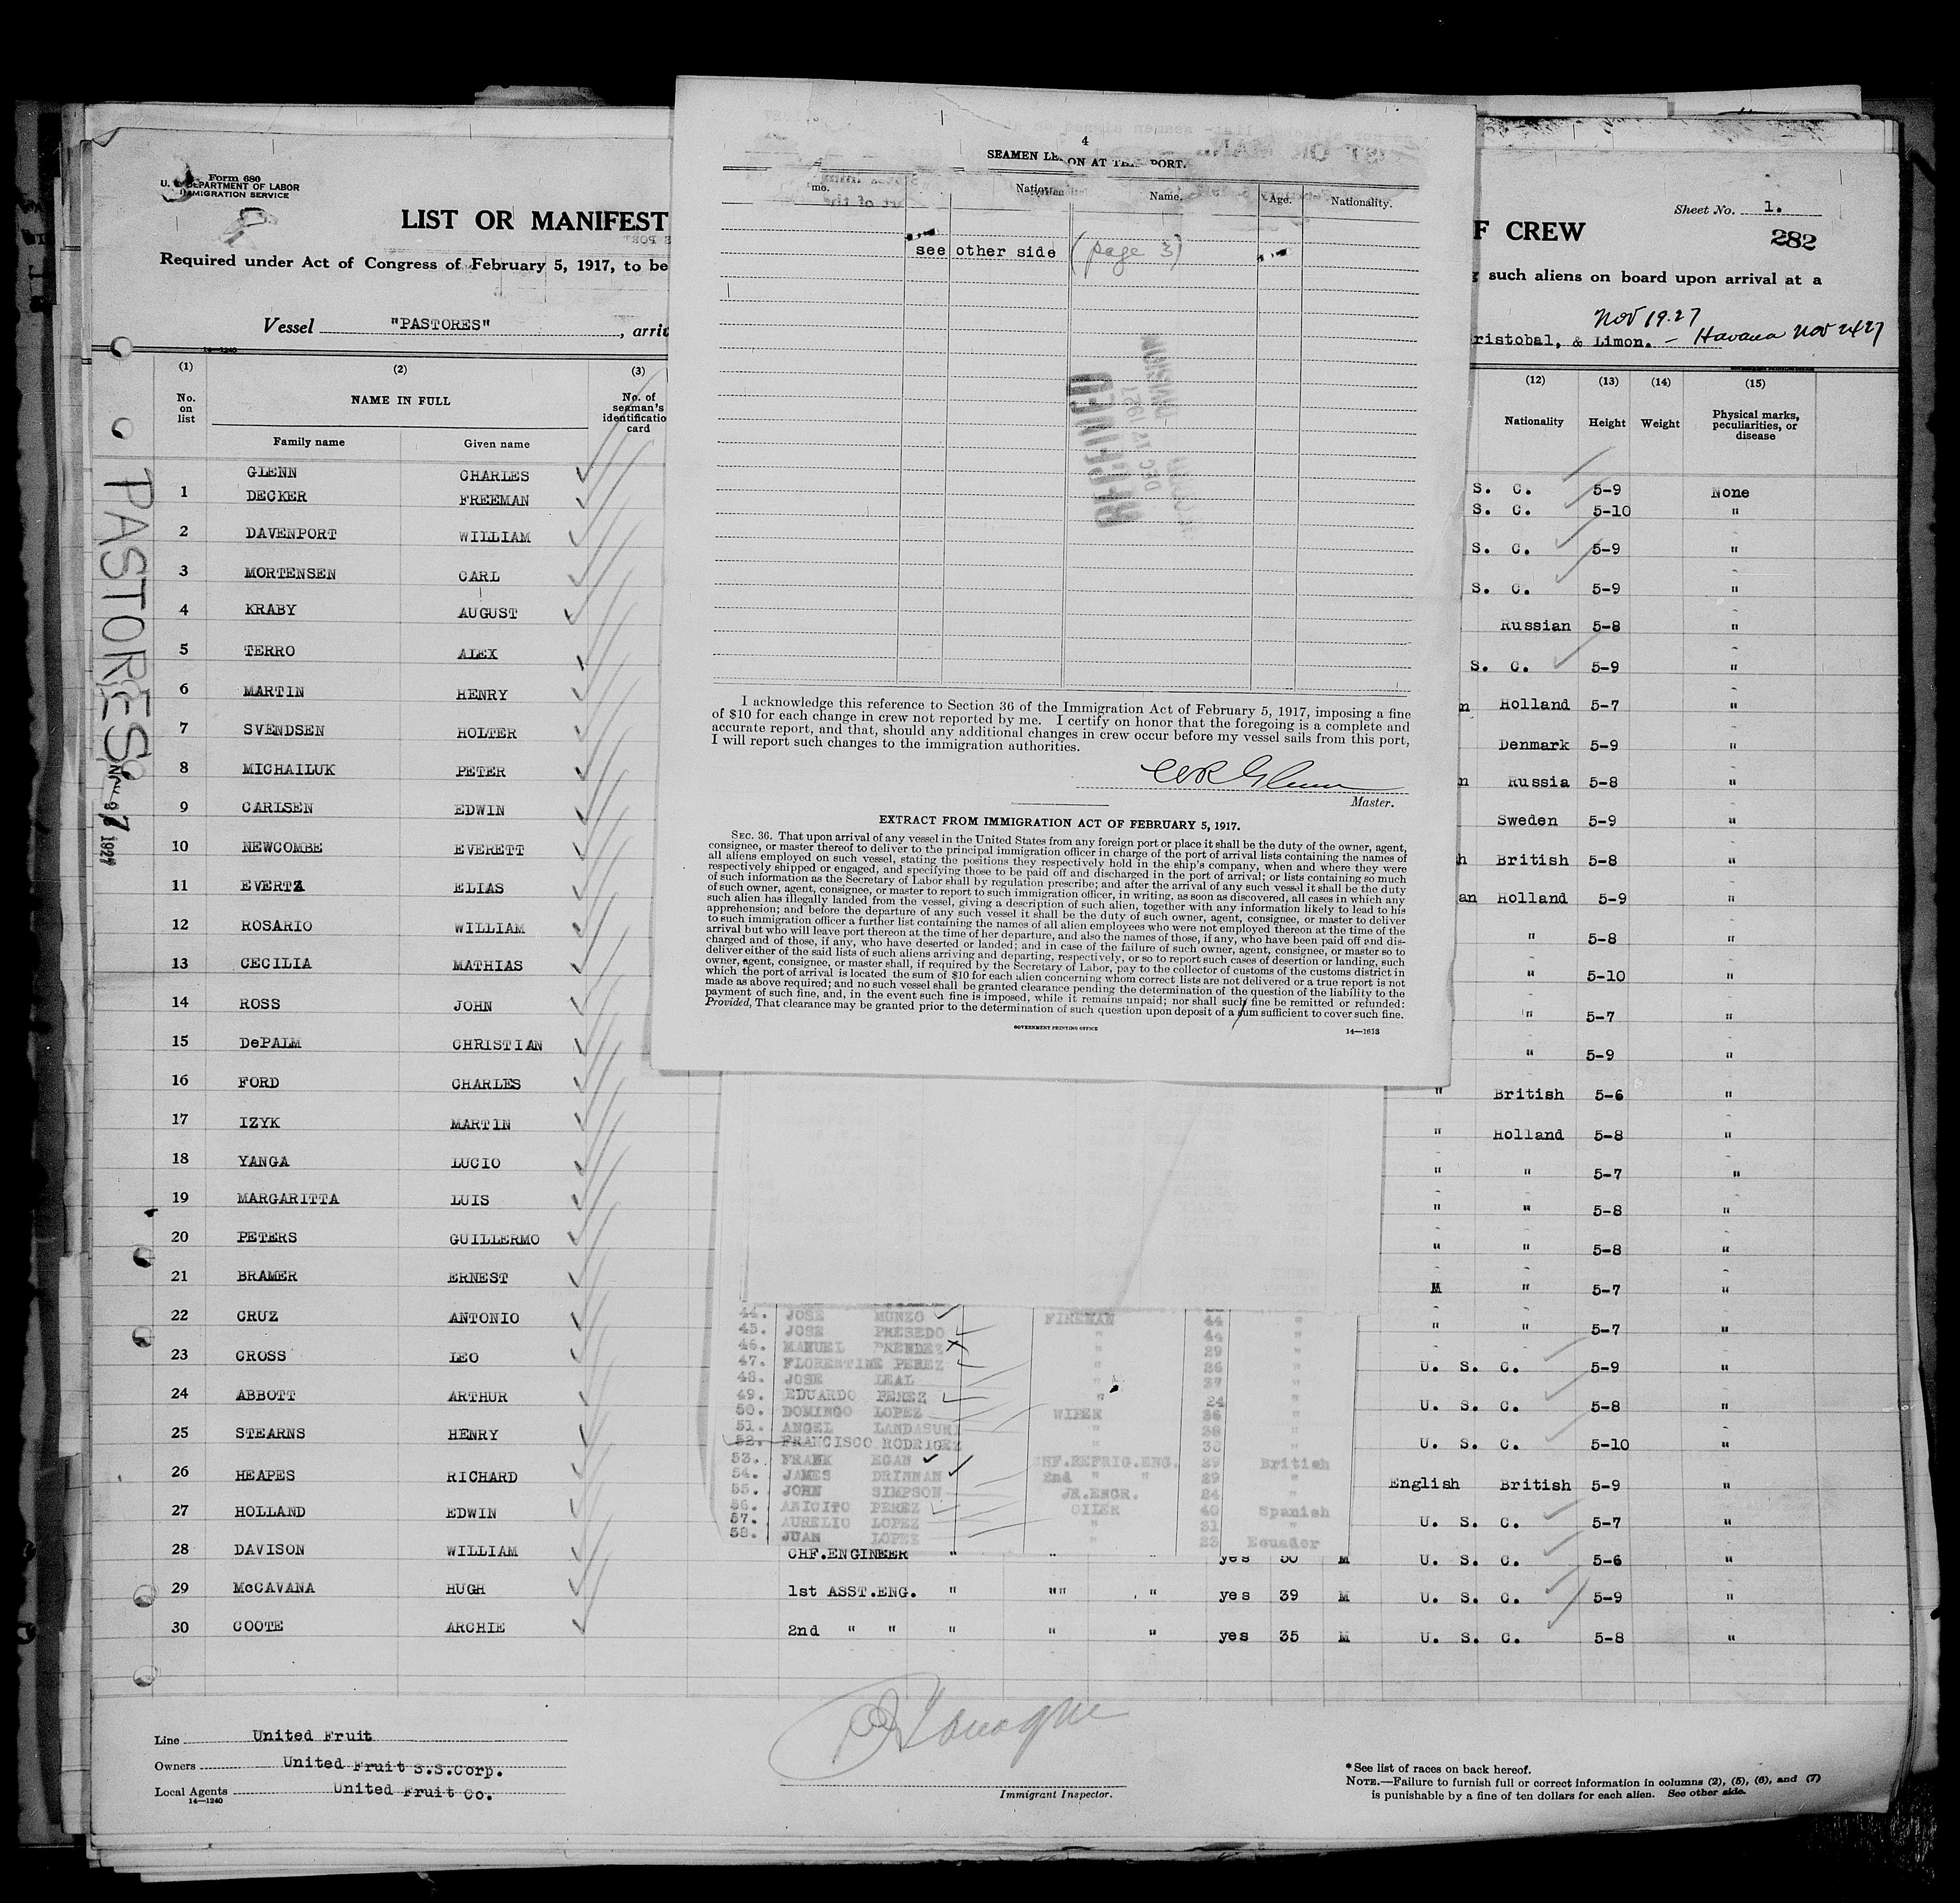 Form 680
U. S. DEPARTMENT OF LABOR
IMMIGRATION SERVICE
LIST OR MANIFEST
Required under Act of Congress of February 5, 1917, to be
Vessel "PASTORES", arri
(1) (2) (3)
No. on list
NAME IN FULL
Family name Given name
No. of seaman's identificatio card
GLENN CHARLES
1 DECKER FREEMAN
2 DAVENPORT WILLIAM
3 MORTENSEN CARL
4 KRABY AUGUST
5 TERRO ALEX
6 MARTIN HENRY
7 SVENDSEN HOLTER
8 MICHAILUK PETER
9 CARLSEN EDWIN
10 NEWCOMBE EVERETT
11 EVERTZ ELIAS
12 ROSARIO WILLIAM
13 CECILIA MATHIAS
14 ROSS JOHN
15 DePALM CHRISTIAN
16 FORD CHARLES
17 IZYK MARTIN
18 YANGA LUCIO
19 MARGARITTA LUIS
20 PETERS GUILLERMO
21 BRAMER ERNEST
22 CRUZ ANTONIO
23 CROSS LEO
24 ABBOTT ARTHUR
25 STEARNS HENRY
26 HEAPES RICHARD
27 HOLLAND EDWIN
28 DAVISON WILLIAM
29 McCAVANA HUGH
30 COOTE ARCHIE
PASTORES
1927
4
SEAMEN LE ON AT THIS PORT.
me. Nation Name. Age. Nationality.
see other side (page 3)
DEC 12 1927
I acknowledge this reference to Section 36 of the Immigration Act of February 5, 1917, imposing a fine
of $10 for each change in crew not reported by me. I certify on honor that the foregoing is a complete and
accurate report, and that, should any additional changes in crew occur before my vessel sails from this port,
I will report such changes to the immigration authorities.
Glenn
Master.
EXTRACT FROM IMMIGRATION ACT OF FEBRUARY 5, 1917.
SEC. 36. That upon arrival of any vessel in the United States from any foreign port or place it shall be the duty of the owner, agent,
consignee, or master thereof to deliver to the principal immigration officer in charge of the port of arrival lists containing the names of
all aliens employed on such vessel, stating the positions they respectively hold in the ship's company, when and where they were
respectively shipped or engaged, and specifying those to be paid off and discharged in the port of arrival; or lists containing so much
of such information as the Secretary of Labor shall by regulation prescribe; and after the arrival of any such vessel it shall be the duty
of such owner, agent, consignee, or master to report to such immigration officer, in writing, as soon as discovered, all cases in which any
such alien has illegally landed from the vessel, giving a description of such alien, together with any information likely to lead to his
apprehension; and before the departure of any such vessel it shall be the duty of such owner, agent, consignee, or master to deliver
to such immigration officer a further list containing the names of all alien employees who were not employed thereon at the time of the
arrival but who will leave port thereon at the time of her departure, and also the names of those, if any, who have been paid off and dis-
charged and of those, if any, who have deserted or landed; and in case of the failure of such owner, agent, consignee, or master so to
deliver either of the said lists of such aliens arriving and departing, respectively, or so to report such cases of desertion or landing, such
owner, agent, consignee, or master shall, if required by the Secretary of Labor, pay to the collector of customs of the customs district in
which the port of arrival is located the sum of $10 for each alien concerning whom correct lists are not delivered or a true report is not
made as above required; and no such vessel shall be granted clearance pending the determination of the question of the liability to the
payment of such fine, and, in the event such fine is imposed, while it remains unpaid; nor shall such fine be remitted or refunded:
Provided, That clearance may be granted prior to the determination of such question upon deposit of a sum sufficient to cover such fine.
GOVERNMENT PRINTING OFFICE
14—1613
44. JOSE MUNZO FIREMAN 44 "
45. JOSE PRESEDO " 44 "
46. MANUEL PRENDEZ " 29 "
47. FLORENTINE PEREZ " 26 "
48. JOSE LEAL " 37 "
49. EDUARDO PEREZ " 24 "
50. DOMINGO LOPEZ WIPER 36 "
51. ANGEL LANDASURI " 38 "
52. FRANCISCO RODRIGEZ " 30 "
53. FRANK EGAN CHF.REFRIG.ENG. 29 British
54. JAMES DRINNAN 2nd " " 29 "
55. JOHN SIMPSON JR.ENGR. 24 "
56. ANICITO PEREZ OILER 40 Spanish
57. AURELIO LOPEZ " 31 "
58. JUAN LOPEZ " 23 Ecuador
CHF.ENGINEER " " " yes 50 M
1st ASST.ENG. " "" " yes 39 M
2nd " " " " " yes 35 M
Sheet No. 1.
F CREW 282
such aliens on board upon arrival at a
Nov 19.27
ristobal, & Limon. — Havana Nov 2427
(12) (13) (14) (15)
Nationality Height Weight Physical marks, peculiarities, or disease
S. C. 5-9 None
S. C. 5-10 "
S. C. 5-9 "
S. C. 5-9 "
Russian 5-8 "
S. C. 5-9 "
n Holland 5-7 "
Denmark 5-9 "
n Russia 5-8 "
Sweden 5-9 "
h British 5-8 "
an Holland 5-9 "
" 5-8 "
" 5-10 "
" 5-7 "
" 5-9 "
" British 5-6 "
" Holland 5-8 "
" " 5-7 "
" " 5-8 "
" " 5-8 "
M " 5-7 "
" " 5-7 "
U. S. C. 5-9 "
U. S. C. 5-8 "
U. S. C. 5-10 "
English British 5-9 "
U. S. C. 5-7 "
U. S. C. 5-6 "
U. S. C. 5-9 "
U. S. C. 5-8 "
Line United Fruit
Owners United Fruit S.S.Corp.
Local Agents United Fruit Co.
14—1240
Immigrant Inspector.
*See list of races on back hereof.
NOTE.—Failure to furnish full or correct information in columns (2), (5), (6), and (7)
is punishable by a fine of ten dollars for each alien. See other side.